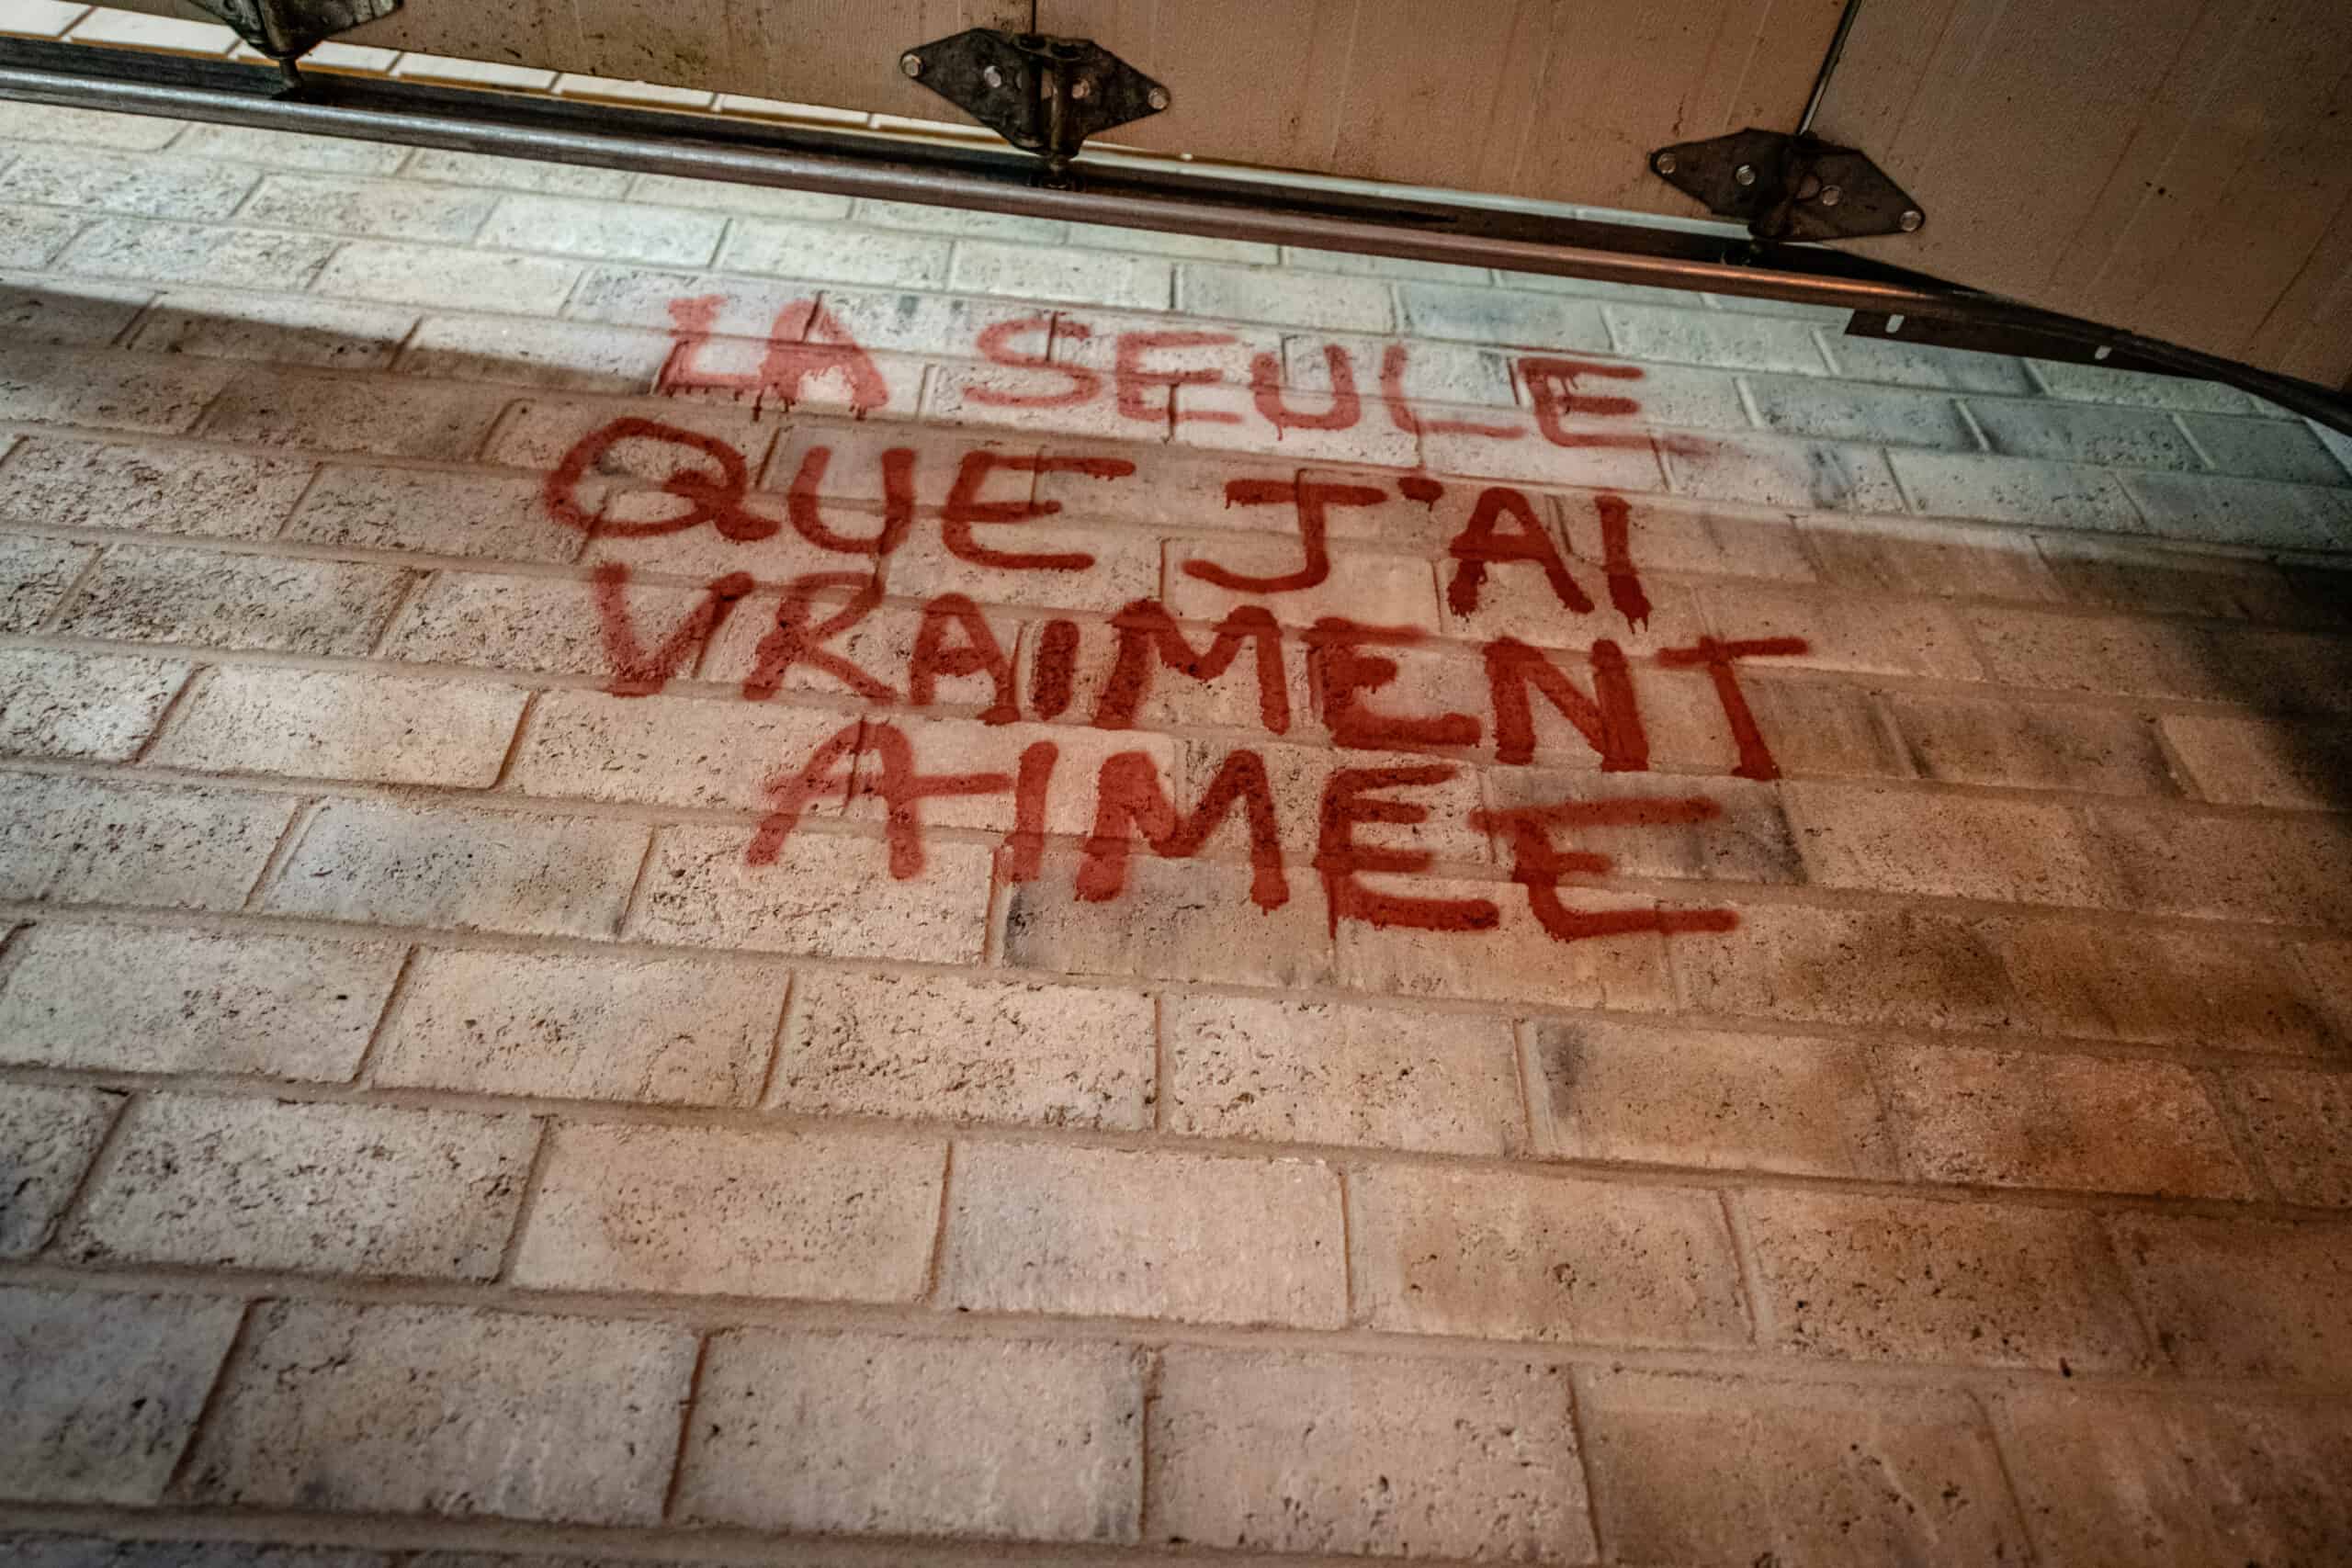 LA SEULE
QUE J'AI
VRAIMENT
AIMEE